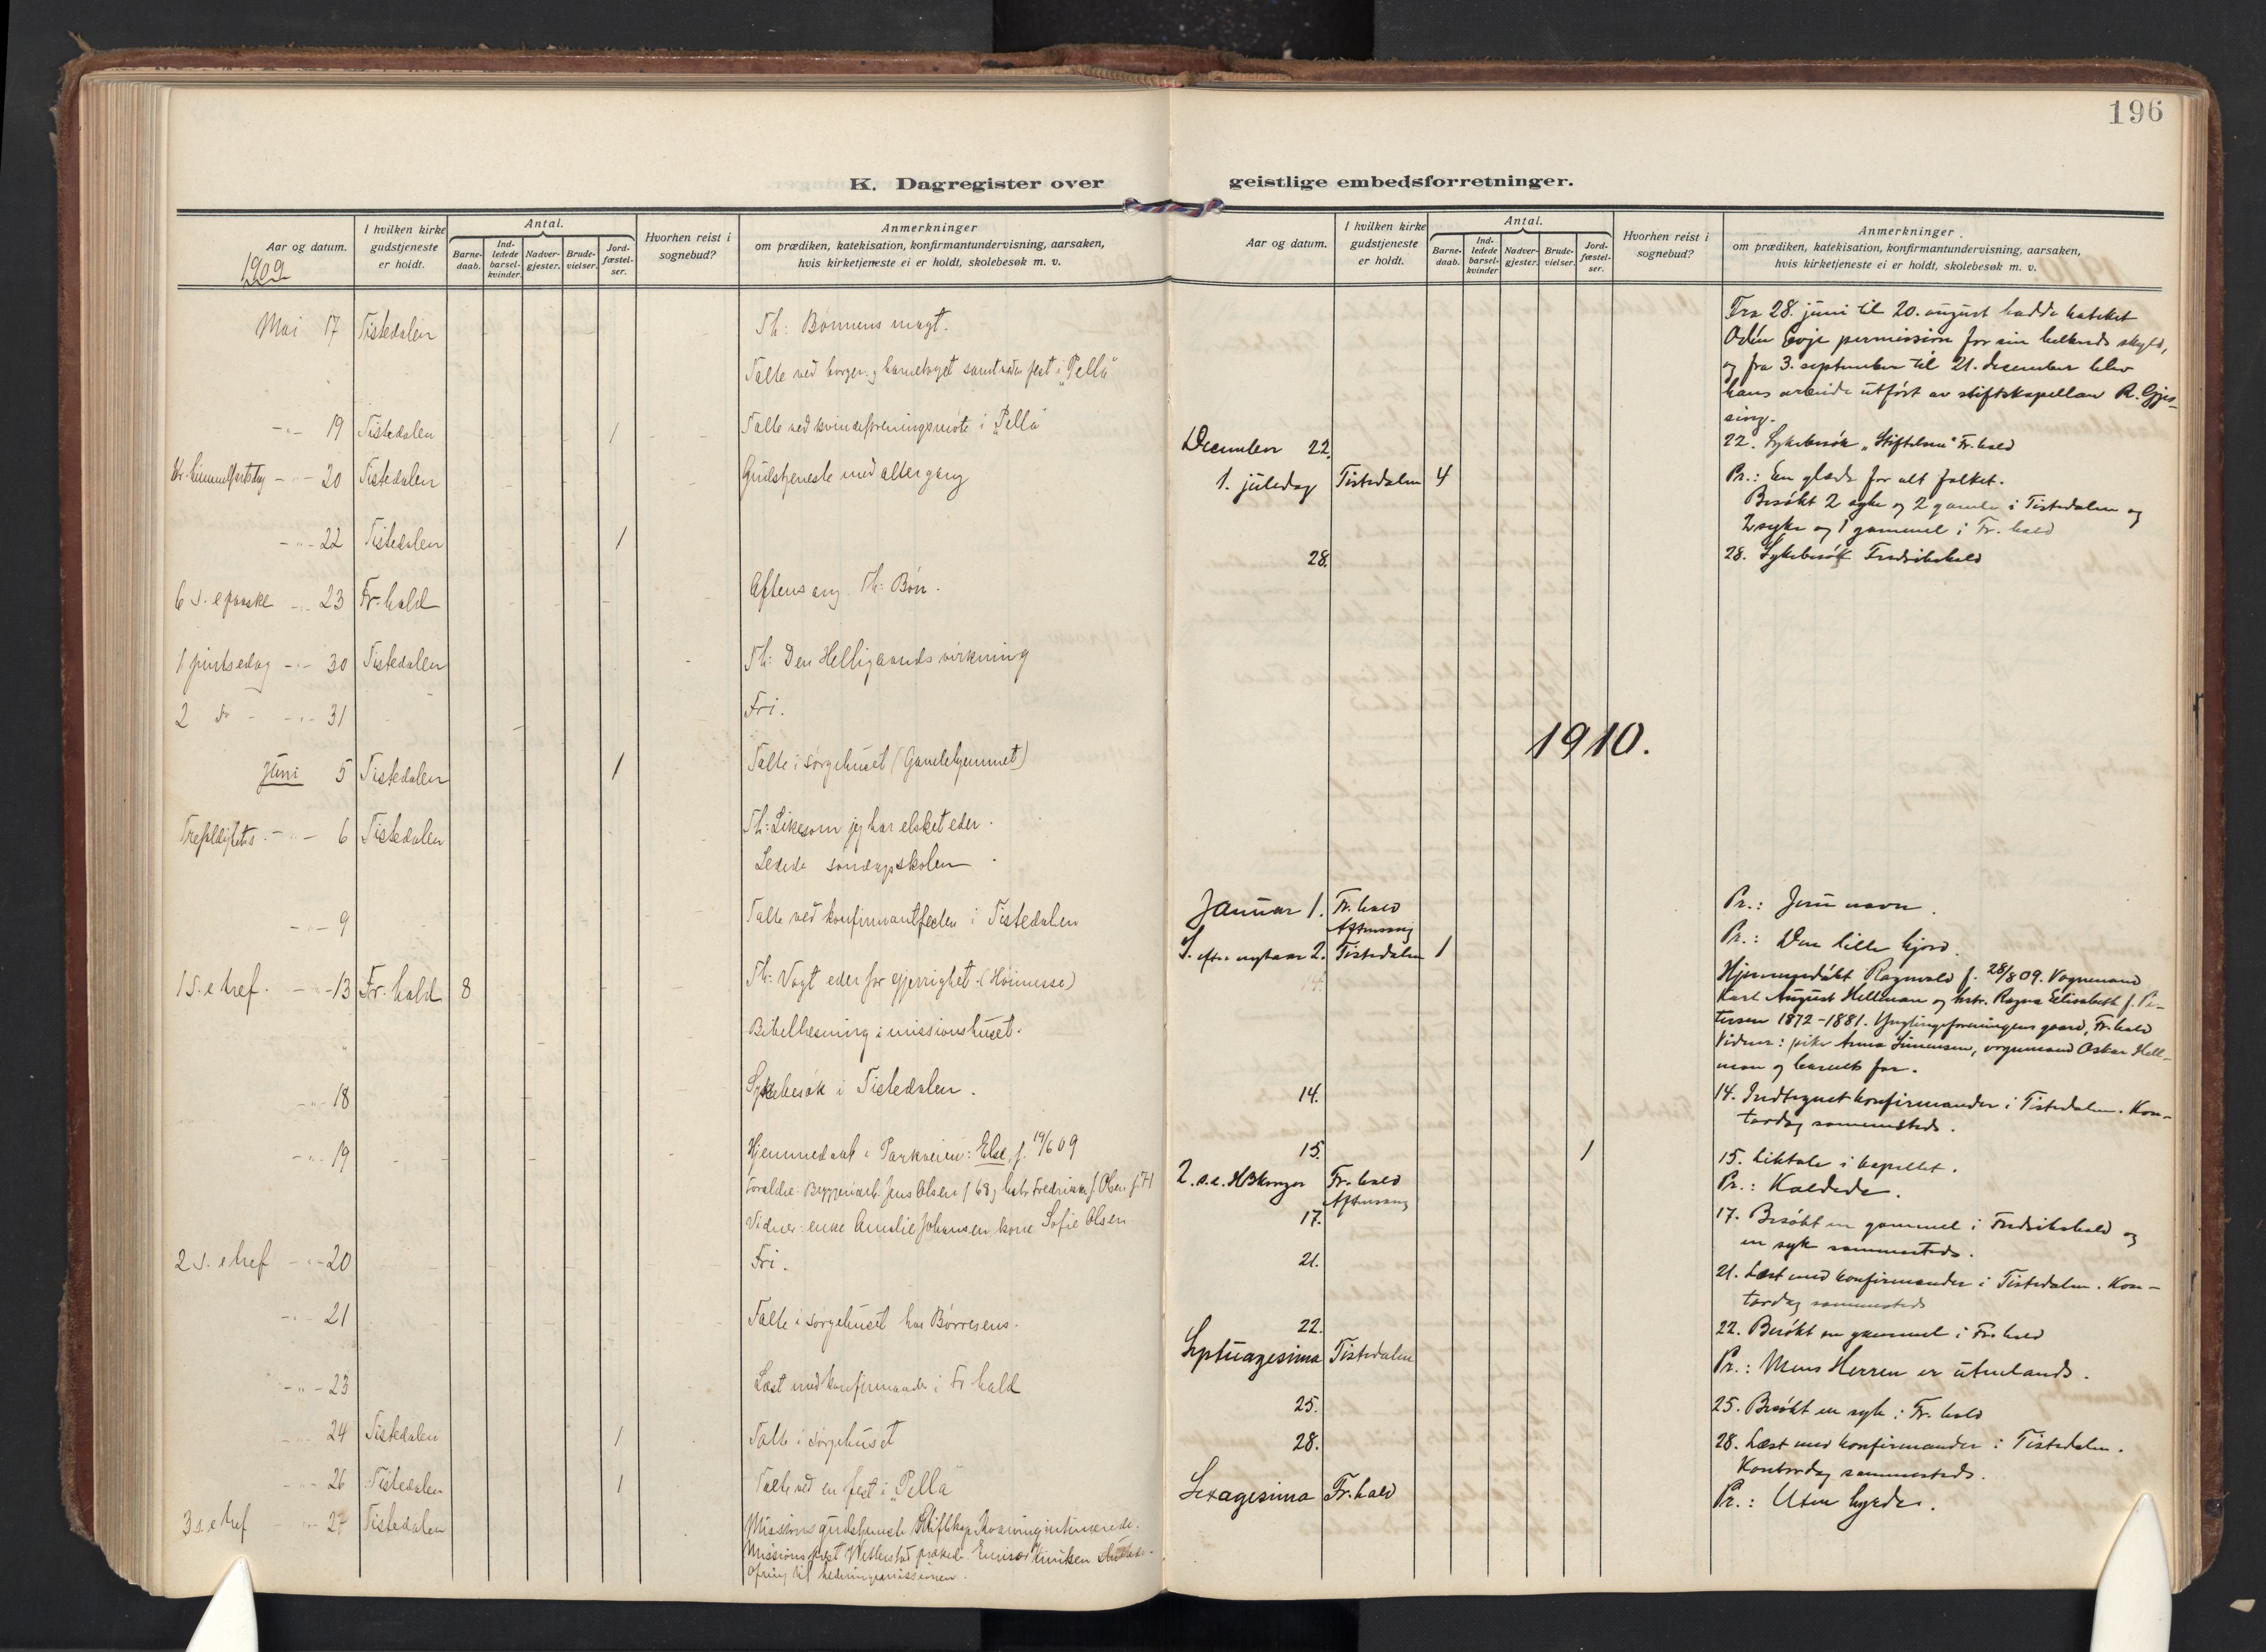 196
K. Dagregister over geistlige embedsforretninger.
Aar og datum.
I hvilken kirke gudstjeneste er holdt.
Antal.
Barnedaab.
Indledede barselkvinder
Nadvergjester.
Brudevielser.
Jordfæstelser.
Hvorhen reist i sognebud?
Anmerkninger
om prædiken, katekisation, konfirmantundervisning, aarsaken,
hvis kirketjeneste ei er holdt, skolebesøk m. v.
1909
Mai 17 Tistedalen Th: Bønnens magt.
Talte ved borger- og barnetoget samt ved en fest i "Pella"
-"- 19 Tistedalen 1 Talte ved kvindeforeningsmøte i "Pella"
Kr. himmelfartsdag -"- 20 Tistedalen Gudstjeneste med altergang
-"- 22 Tistedalen 1
6 s. e paaske -"- 23 Fr.hald Aftensang. Th: Bøn.
1 pintsedag -"- 30 Tistedalen Th: Den Helligaands virkning
2 do -"- 31 Fri.
Juni 5 Tistedalen 1 Talte i sørgehuset (Gamlehjemmet)
Trefoldighets. -"- 6 Tistedalen Th: Likesom jeg har elsket eder.
Ledede søndagsskolen
-"- 9 Talte ved konfirmantfesten i Tistedalen
1 s. e tref. -"- 13 Fr.hald 8 Th: Vogt eder for gjerrighet. (Høimesse)
Bibellæsning i missionshuset.
-"- 18 Sykebesøk i Tistedalen.
-"- 19 Hjemmedaab i Parkveien: Else, f. 19/6 09
Forældre: Byggeriarb. Jens Olsen f 68 og hustr Fredrikke f. Olsen f. 71
Vidner: enke Amalie Johansen, kone Sofie Olsen
2 s. e tref -"- 20 Fri.
-"- 21 Talte i sørgehuset hos Børresens.
-"- 23 Læst med konfirmander i Fr.hald
-"- 24 Tistedalen 1 Talte i sørgehuset
-"- 26 Tistedalen 1 Talte ved en fest i "Pella"
3 s. e tref -"- 27 Tistedalen Missionsgudstjeneste. Stiftskap.
Missionsprest
Ofring til hedningemissionen.
Aar og datum.
I hvilken kirke gudstjeneste er holdt.
Antal.
Barnedaab.
Indledede barselkvinder
Nadvergjester.
Brudevielser.
Jordfæstelser.
Hvorhen reist i sognebud?
Anmerkninger
om prædiken, katekisation, konfirmantundervisning, aarsaken,
hvis kirketjeneste ei er holdt, skolebesøk m. v.
Fra 28. juni til 20. august hadde kateket
Odén Evje permission for sin helbreds skyld,
og fra 3. september til 21. december blev
hans arbeide utført av stiftskapellan R. Gjes-
sing.
December 22. 22. Sykebesøk "Stiftelsen" Fr.hald
1. juledag Tistedalen 4 Pr.: En glæde for alt folket.
Besøkt 2 syke og 2 gamle i Tistedalen og
2 syke og 1 gammel i Fr.hald
28. 28. Sykebesøk Fredrikshald
1910.
Januar 1. Fr.hald Aftensang Pr.: Jesu navn.
S. efter nytaar 2. Tistedalen 1 Pr.: Den lille hjord.
Hjemmedøbt Ragnvald f. 28/8 09. Vognmand
Karl August Hellman og hstr. Ragna Elisabeth f. Pe-
tersen 1872-1881. Ynglingeforeningens gaard, Fr.hald
Vidner: pike Anna Simensen, vognmand Oskar Hell-
man og barnets far.
14. 14. Indtegnet konfirmander i Tistedalen. Kon-
tordag sammesteds.
15. 1 15. Liktale i kapellet.
2. s. e. H3konger Fr.hald Aftensang Pr.: Kaldede.
17. 17. Besøkt en gammel i Fredrikshald og
en syk sammesteds.
21. 21. Læst med konfirmander i Tistedalen. Kon-
tordag sammesteds
22. 22. Besøkt en gammel i Fr.hald
Septuagesima Tistedalen Pr.: Mens Herren er utenlands.
25. 25. Besøkt en syk i Fr.hald
28. 28. Læst med konfirmander i Tistedalen.
Kontordag sammesteds.
Sexagesima Fr.hald Pr.: Uten hyrde.